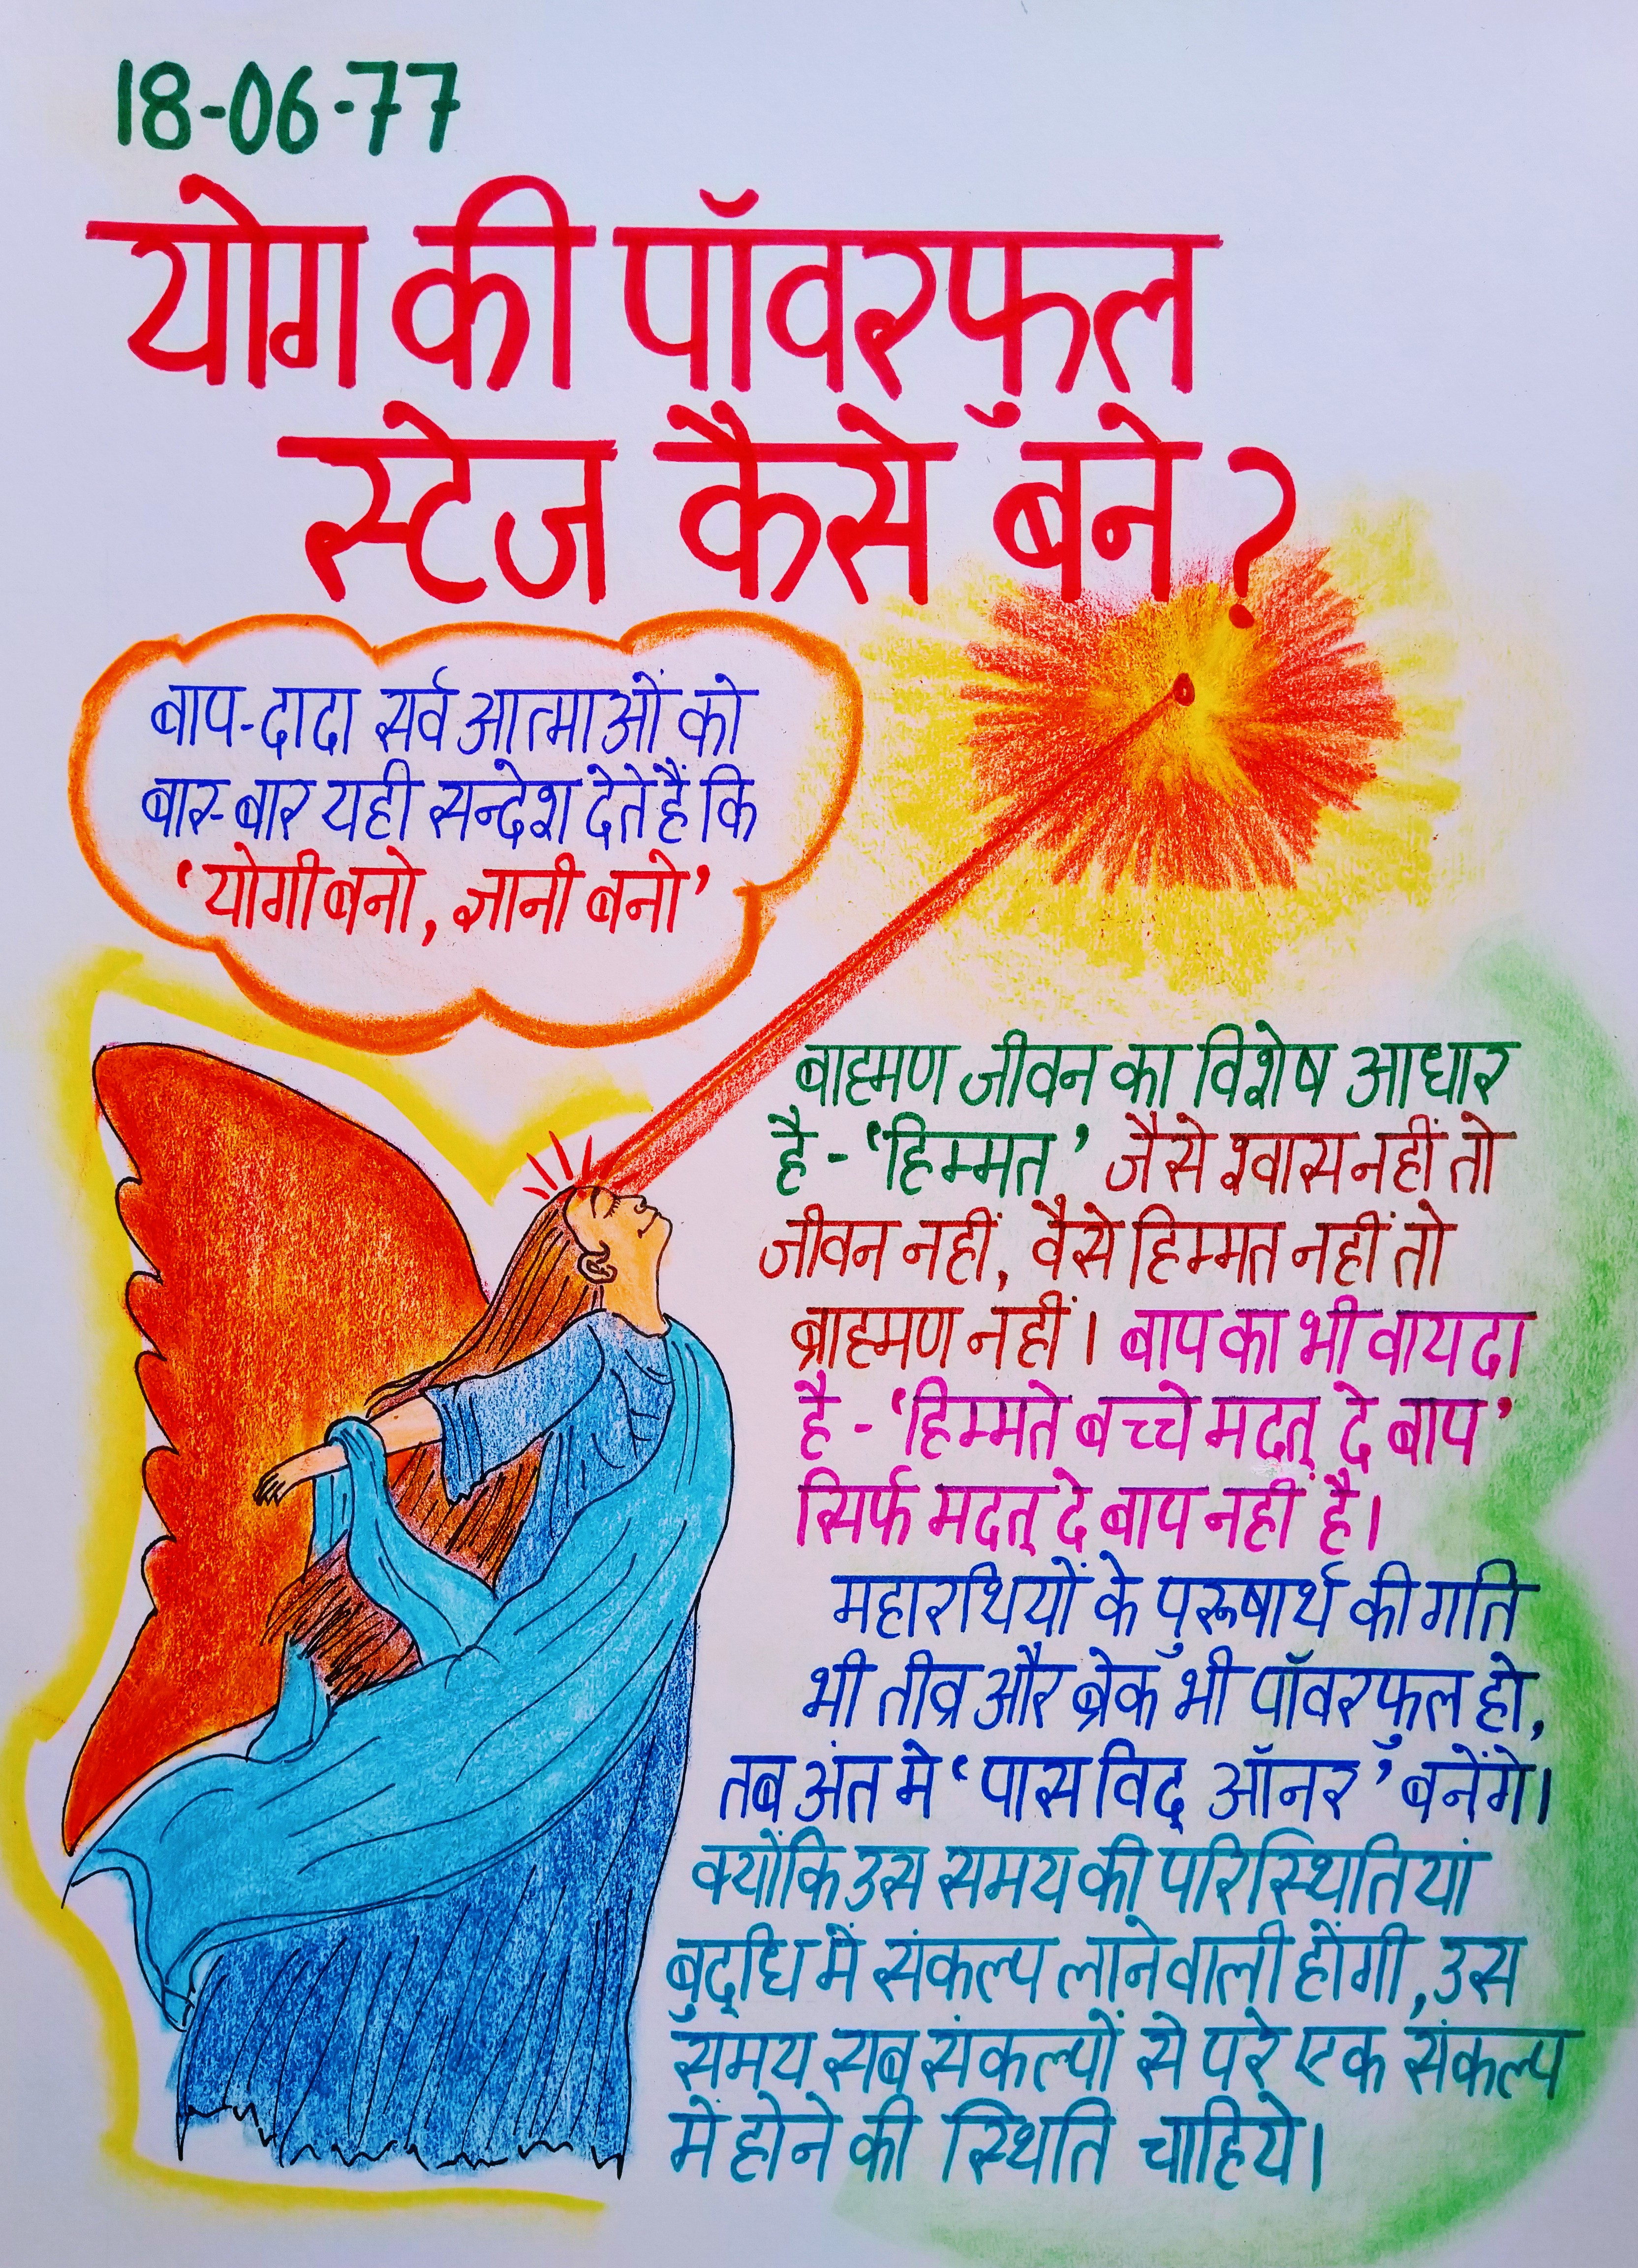 18-06-77
योग की पॉवरफुल
स्टेज कैसे बने?
बाप-दादा सर्व आत्माओं को
बार-बार यही सन्देश देते हैं कि
'योगी बनो, ज्ञानी बनो'
बाह्मण जीवन का विशेष आधार
है - 'हिम्मत' जैसे श्वास नहीं तो
जीवन नहीं, वैसे हिम्मत नहीं तो
ब्राह्मण नहीं। बाप का भी वायदा
है - 'हिम्मते बच्चे मदत् दे बाप'
सिर्फ मदत् दे बाप नहीं है।
महारथियों के पुरूषार्थ की गति
भी तीव्र और ब्रेक भी पॉवरफुल हो,
तब अंत मे 'पास विद् ऑनर' बनेंगे।
क्योंकि उस समय की परिस्थितियां
बुद्धि में संकल्प लाने वाली होंगी, उस
समय सब संकल्पों से परे एक संकल्प
में होने की स्थिति चाहिये।